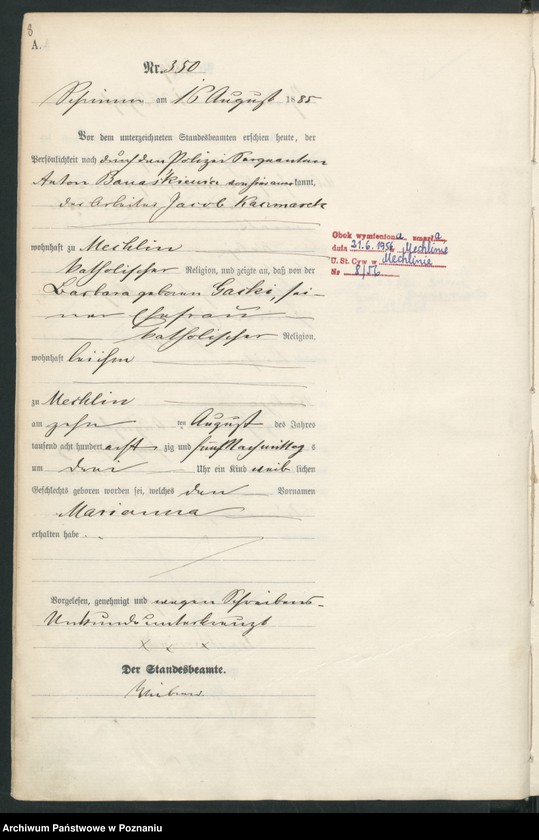 8
A.
Nr. 350
Schrimm am 16 August 1885
Vor dem unterzeichneten Standesbeamten erschien heute, der
Persönlichkeit nach durch den Polizei Sergeanten
Anton Banaskiewicz kannt,
der Arbeiter Jacob Kaczmarek
wohnhaft zu Mechlin
katholischer Religion, und zeigte an, daß von der
Barbara geboren Gaski, sei-
ner Ehefrau
katholischer Religion,
wohnhaft bei ihm
zu Mechlin
am zehn ten August des Jahres
tausend acht hundert acht zig und fünf Nachmittag s
um drei Uhr ein Kind weib lichen
Geschlechts geboren worden sei, welches den Vornamen
Marianna
erhalten habe.
Vorgelesen, genehmigt und wegen Schreibens-
Unkunde unterkreuzt
x x x
Der Standesbeamte.
Obok wymieniona zmarła
dnia 21.6.1956 Mechlinie
U. St. Cyw w Mechlinie
Nr 8/56
Archiwum Państwowe w Poznaniu